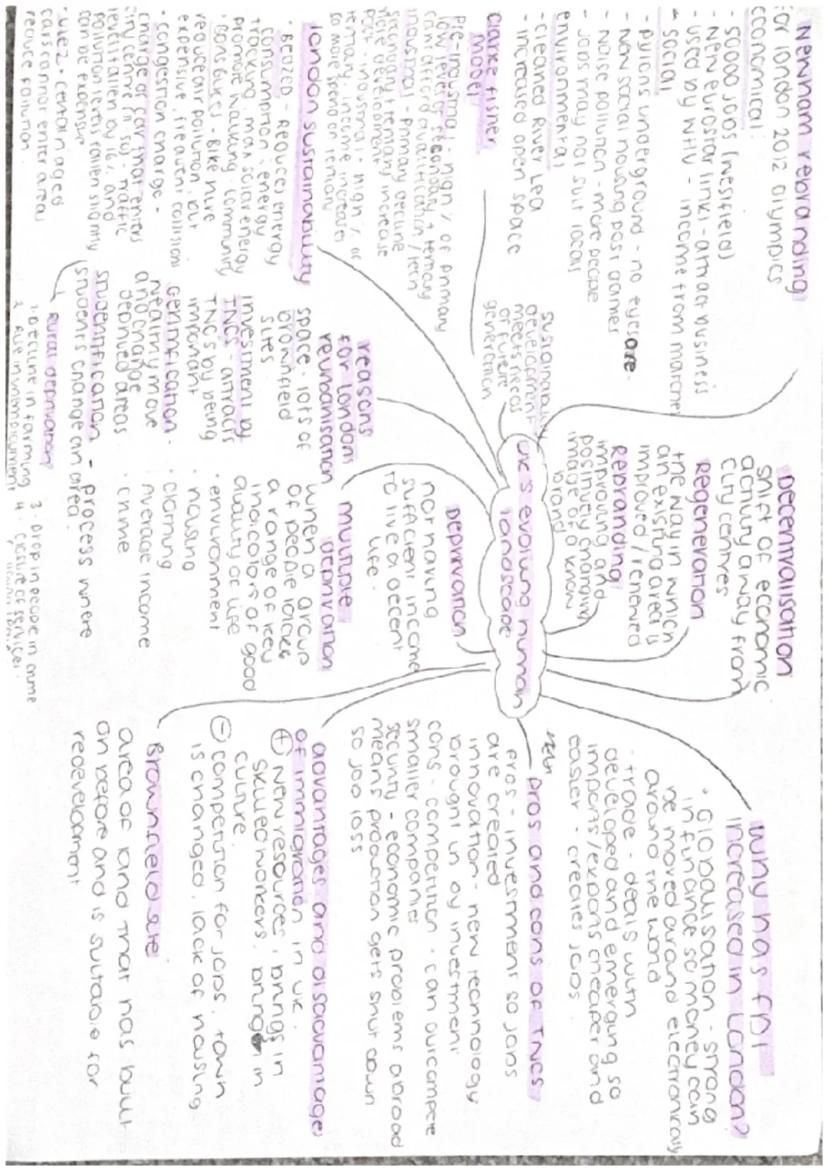 UK's evolving human
landscape
Newham rebranding
for London 2012 Olympics
economical:
- 50000 jobs (Westfield)
- New eurostar links - attract business
- used by WHU - income from matches
- social
- pylons underground - no eyesore
- New social housing post games
- Noise pollution - more people
- Jobs may not suit locals
environmental
- cleaned River Lea
- increased open space
Clarke Fisher
Model
Pre-industrial: high % of primary
low levels of secondary + tertiary
industrial - primary decline
secondary & tertiary increase
more development
post industrial - high % of
tertiary, income increases
so more spend on tertiary
London sustainability
· BEDZED - Reduces energy
consumption: energy
tracking, max solar energy
promote walking, community
· BORIS BIKES - Bike hire
reduce air pollution, but
expensive, frequent collisions
· congestion charge -
charge of £ for that enters
city centre in
level fallen by 16% and
pollution levels fallen slightly
can be expensive
· certain aged
cars cannot enter area
reduce pollution.
sustainable
development
meets needs
of future
generation
reasons
for London
reurbanisation
space - lots of
brownfield
sites
investment by
TNCs attracts
TNCs by being
important
Gentrification -
wealthy move
and change
deprived areas
studentification - process where
students change an area.
Rural deprivation
1. Decline in farming
2. Rise in unemployment
3. Drop in people in
4. closure of services.
multiple
deprivation
when a group
of people lacks
a range of key
indicators of good
quality of life
· environment
· housing
· clothing
· Average income
· crime
Deprivation
not having
sufficient income
to live a decent
life.
Decentralisation
shift of economic
activity away from
city centres
Regeneration
the way in which
an existing area is
improved / renewed
Rebranding
improving and
positively changing
image of a know
brand
Why has FDI
increased in London?
· Globalisation - strong
in finance so money can
be moved around electronically
around the world
· trade - deals with
developed and emerging so
imports/exports cheaper and
easier - creates jobs.
Pros and cons of TNCs
Pros - investment so jobs
are created
innovation - new technology
brought in by investment
cons - competition - can outcompete
smaller companies
security - economic problems abroad
means production gets shut down
so job loss
advantages and disadvantages
of immigration in UK.
+ New resources, brings in
skilled workers, bring in
culture.
- competition for jobs, town
is changed, lack of housing
Brownfield site
area of land that has built
on before and is suitable for
redevelopment